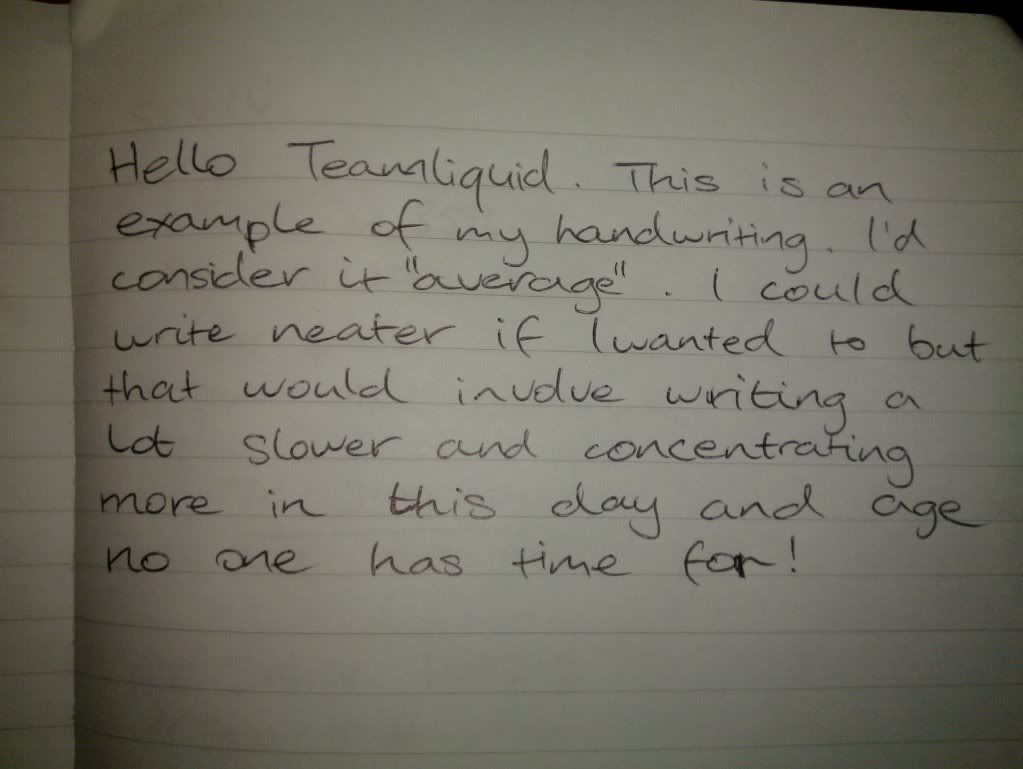 Hello Teamliquid. This is an
example of my handwriting. I'd
consider it "average". I could
write neater if I wanted to but
that would involve writing a
lot slower and concentrating
more in this day and age
no one has time for!